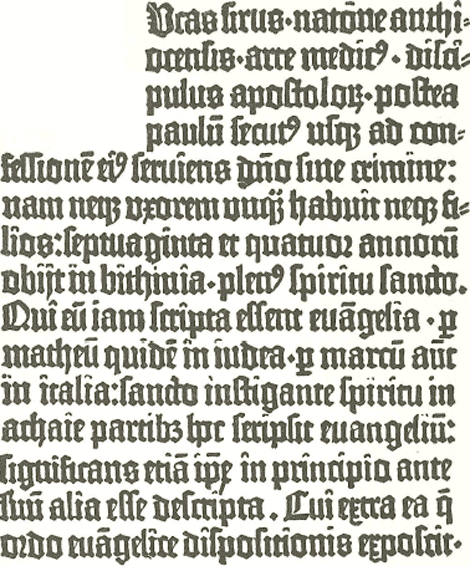 Ucas sirus·natōne anthi⸗
ocensis·arte medicꝰ·disci⸗
pulus apostoloꝝ·postea
paulū secutꝰ usqꝫ ad con⸗
fessionē eiꝰ seruiens dn̄o sine crimine:
nam neqꝫ vxorem vnqȝ̄ habuit neqꝫ fi⸗
lios:septuaginta et quatuor annorū
obijt in bithinia·plenꝰ spiritu sancto.
Qui cū iam scripta essent euāgelia·ꝑ
matheū quidē in iudea·ꝑ marcū aūt
in italia:sancto instigante spiritu in
achaie partibꝫ hoc scripsit euangeliū:
significans etiā ip̄e in principio ante
suū alia esse descripta. Cui extra ea q̄
ordo euāgelice dispositionis exposcit·